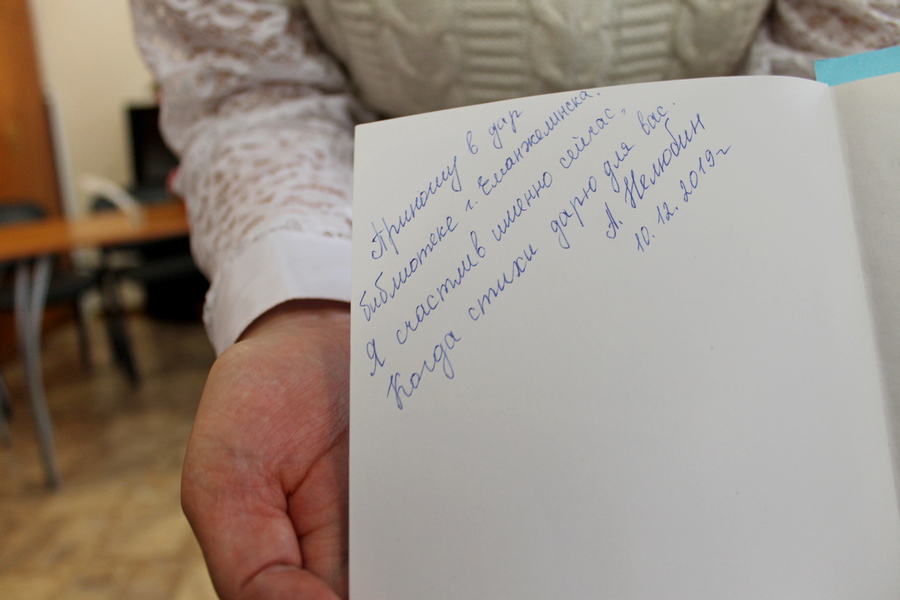 Приношу в дар
библиотеке г. Еманжелинска.
Я счастлив именно сейчас,
Когда стихи дарю для вас.
А. Нелюбин
10.12.2019г